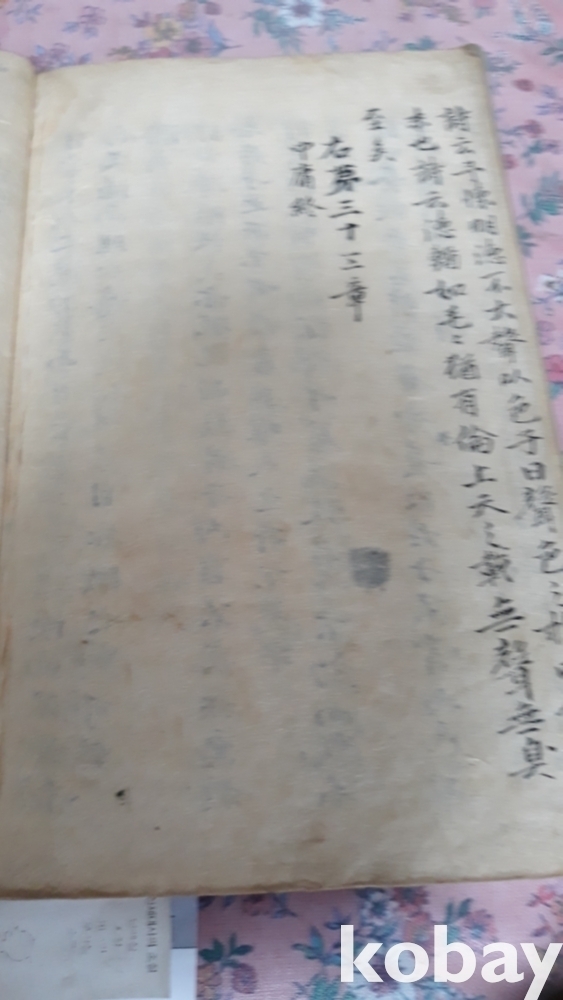 詩云予懷明德不大聲以色子曰聲色之於
末也詩云德輶如毛〻猶有倫上天之載無聲無臭
至矣
右第三十三章
中庸終
kobay